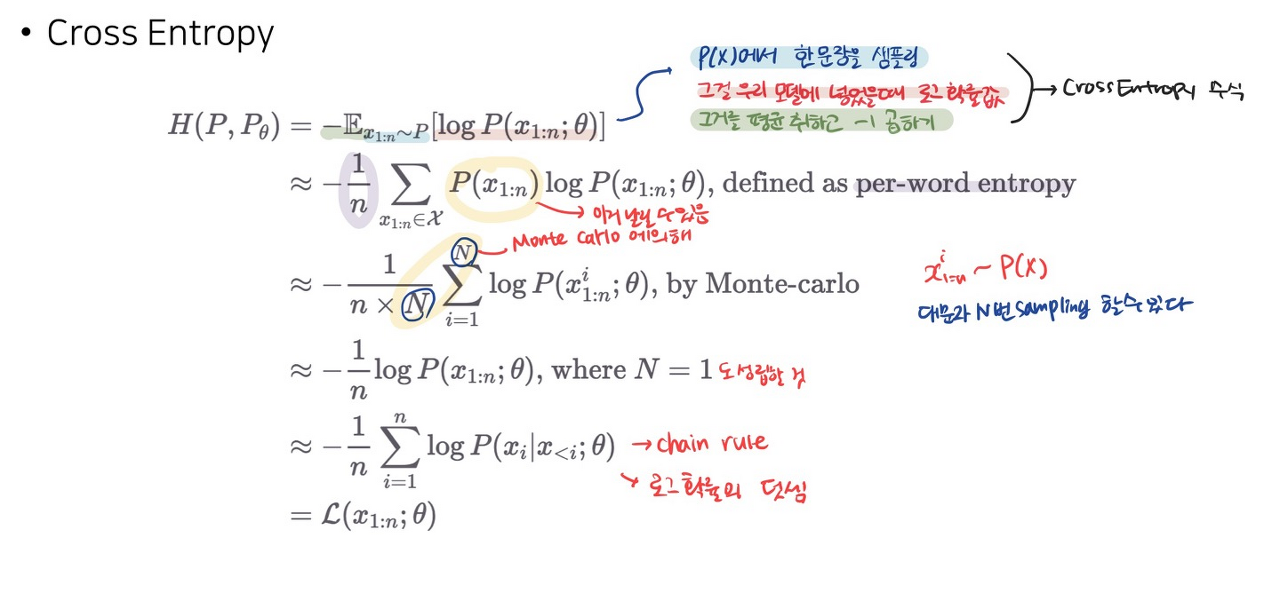 • Cross Entropy
P(x)에서 한 문장을 샘플링
그걸 우리 모델에 넣었을때 로그 확률값
그거를 평균 취하고 -1 곱하기
→ CrossEntropy 수식
H(P, P_θ) = −𝔼_{x_{1:n}∼P}[log P(x_{1:n}; θ)]
≈ −1/n ∑_{x_{1:n}∈𝒳} P(x_{1:n}) log P(x_{1:n}; θ), defined as per-word entropy
→ 이거 날릴 수 있음
Monte Carlo 에 의해
≈ −1/(n × N) ∑_{i=1}^{N} log P(x^i_{1:n}; θ), by Monte-carlo
x^i_{1:n} ~ P(x)
N번 sampling 할 수 있다
≈ −1/n log P(x_{1:n}; θ), where N = 1 도 성립할 것
≈ −1/n ∑_{i=1}^{n} log P(x_i|x_{<i}; θ) → chain rule
↘ 로그 확률의 덧셈
= ℒ(x_{1:n}; θ)